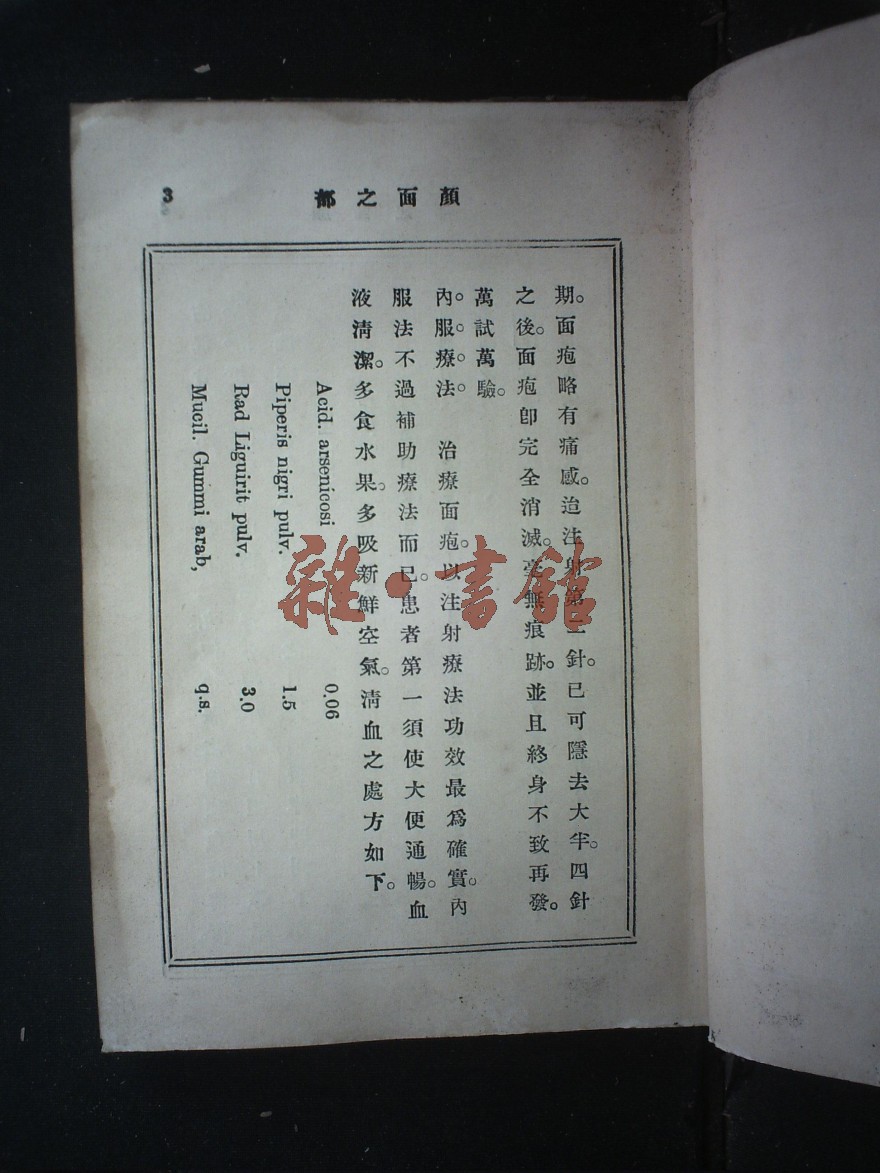 顏面之部
3
期。面疱略有痛感。迨注射第二針。已可隱去大半。四針
之後。面疱卽完全消滅。毫無痕跡。並且終身不致再發。
萬試萬驗。
內。服。療。法。 治療面疱。以注射療法功效最爲確實。內
服法不過補助療法而已。患者第一須使大便通暢。血
液淸潔。多食水果。多吸新鮮空氣。淸血之處方如下。
Acid. arsenicosi 0.06
Piperis nigri pulv. 1.5
Rad Liguirit pulv. 3.0
Mucil. Gummi arab, q.s.
雜·書館